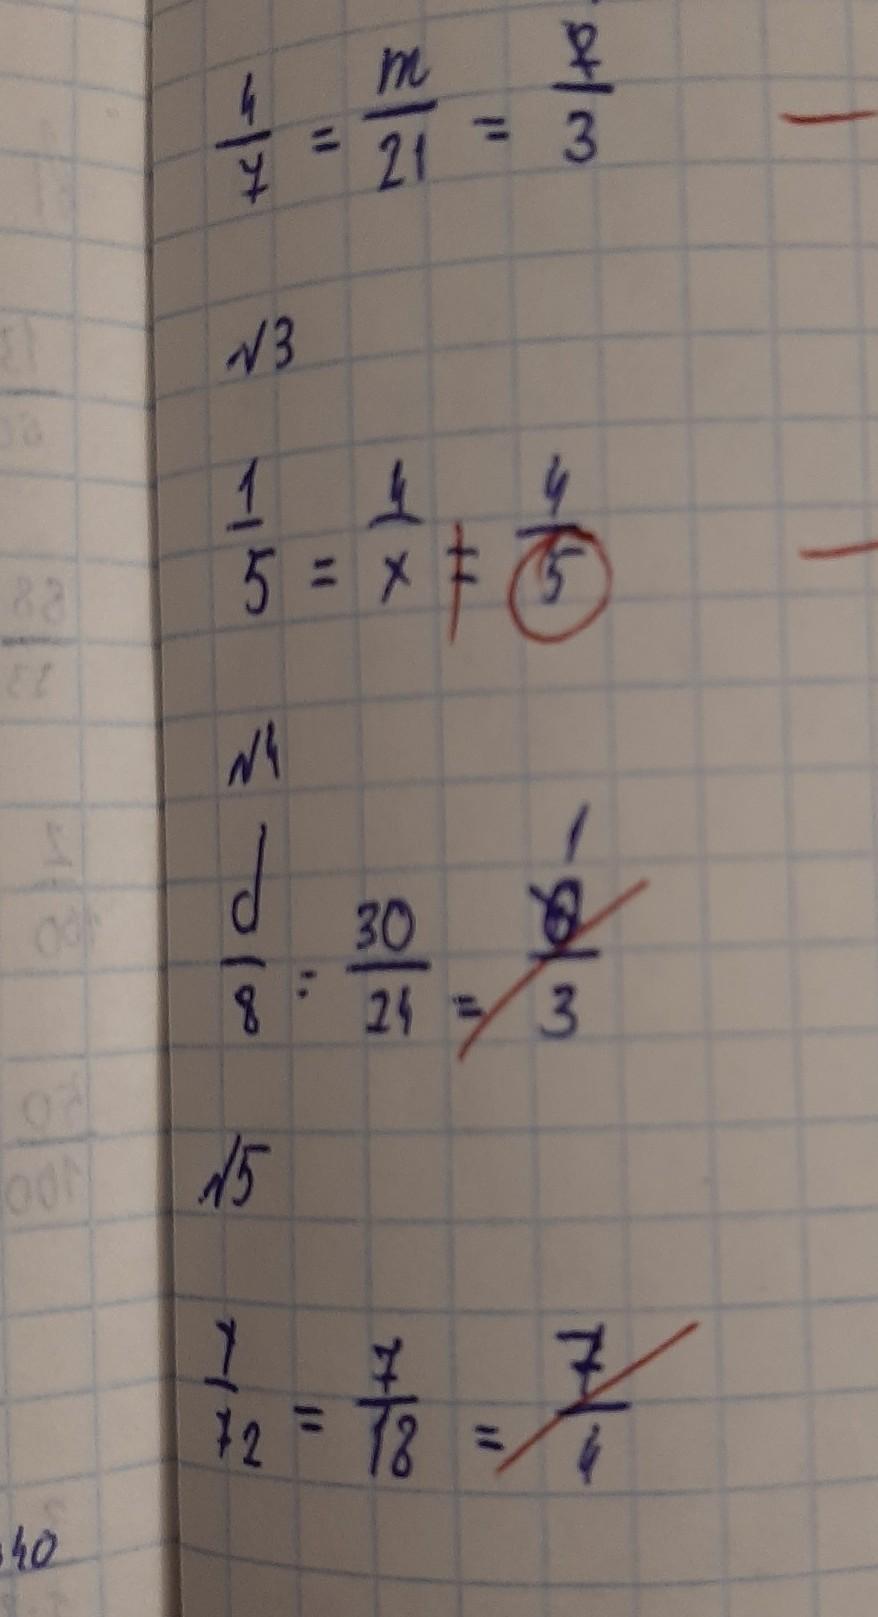 4/7 = m/21 = 7/3
№3
1/5 = 4/x ≠ 4/5
№4
d/8 = 30/24 = 1/3
№5
y/72 = 7/18 = 7/4
40